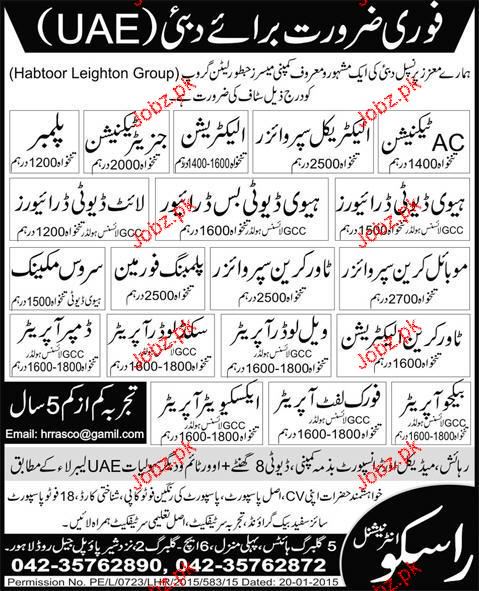 فوری ضرورت برائے دبئی (UAE)
ہمارے معزز پرنسپل دبئی کی ایک مشہور و معروف کمپنی میسرز حبطور لیٹن گروپ (Habtoor Leighton Group)
کو درج ذیل سٹاف کی ضرورت ہے۔
AC ٹیکنیشن
تنخواہ 1400 درہم
الیکٹریکل سپروائزر
تنخواہ 2500 درہم
الیکٹریشن
تنخواہ 1400-1600 درہم
جنریٹر ٹیکنیشن
تنخواہ 2000 درہم
پلمبر
تنخواہ 1200 درہم
ہیوی ڈیوٹی ڈرائیورز
GCC لائسنس ہولڈر تنخواہ 1500 درہم
ہیوی ڈیوٹی بس ڈرائیور
GCC لائسنس ہولڈر تنخواہ 1600 درہم
لائٹ ڈیوٹی ڈرائیورز
GCC لائسنس ہولڈر تنخواہ 1200 درہم
موبائل کرین سپروائزر
تنخواہ 2700 درہم
ٹاور کرین سپروائزر
تنخواہ 2500 درہم
پلمبنگ فورمین
تنخواہ 2500 درہم
سروس مکینک
ہیوی ڈیوٹی تنخواہ 1500 درہم
ٹاور کرین الیکٹریشن
تنخواہ 1600 درہم
ویل لوڈر آپریٹر
GCC لائسنس ہولڈر
تنخواہ 1600-1800 درہم
سکڈ لوڈر آپریٹر
GCC لائسنس ہولڈر
تنخواہ 1600-1800 درہم
ڈمپر آپریٹر
GCC لائسنس ہولڈر
تنخواہ 1600-1800 درہم
بیکہو آپریٹر
GCC لائسنس ہولڈر
تنخواہ 1600-1800 درہم
فورک لفٹ آپریٹر
GCC لائسنس ہولڈر
تنخواہ 1600-1800 درہم
ایکسکیویٹر آپریٹر
GCC لائسنس ہولڈر
تنخواہ 1600-1800 درہم
تجربہ کم از کم 5 سال
Email: hrrasco@gamil.com
رہائش، میڈیکل اور ٹرانسپورٹ بذمہ کمپنی، ڈیوٹی 8 گھنٹے + اوور ٹائم و دیگر سہولیات UAE لیبر لاء کے مطابق
خواہشمند حضرات اپنی CV، اصل پاسپورٹ، پاسپورٹ کی رنگین فوٹو کاپی، شناختی کارڈ، 18 فوٹو پاسپورٹ
سائز سفید بیک گراؤنڈ، تجربہ سرٹیفکیٹ، اصل تعلیمی سرٹیفکیٹ ہمراہ لائیں۔
راسکو انٹرنیشنل
5 گلبرگ ہائٹس، پہلی منزل، 6 ایچ-گلبرگ 2، نزد شیر پاؤ پل جیل روڈ لاہور۔
042-35762890, 042-35762872
Permission No. PE/L/0723/LHR/2015/583/15 Dated: 20-01-2015
Jobz.pk